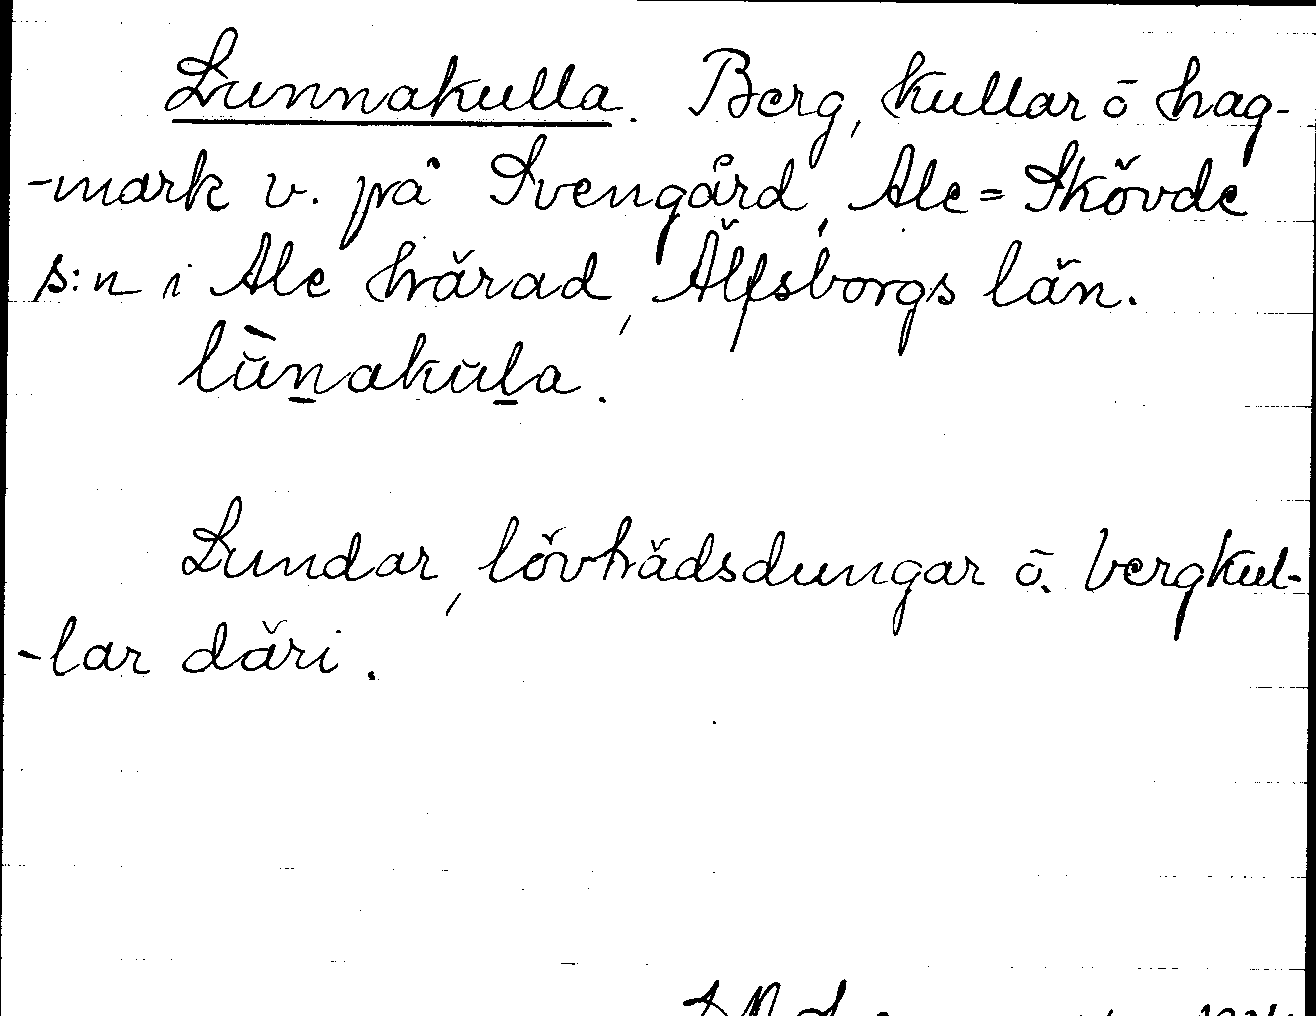 Lunnakulla. Berg, kullar ō hag-
-mark v. på Svengård, Ale=Skövde
s:n i Ale härad, Älfsborgs län.
lùn̲akul̲a.
Lundar, lövträdsdungar ō. bergkul-
-lar däri.